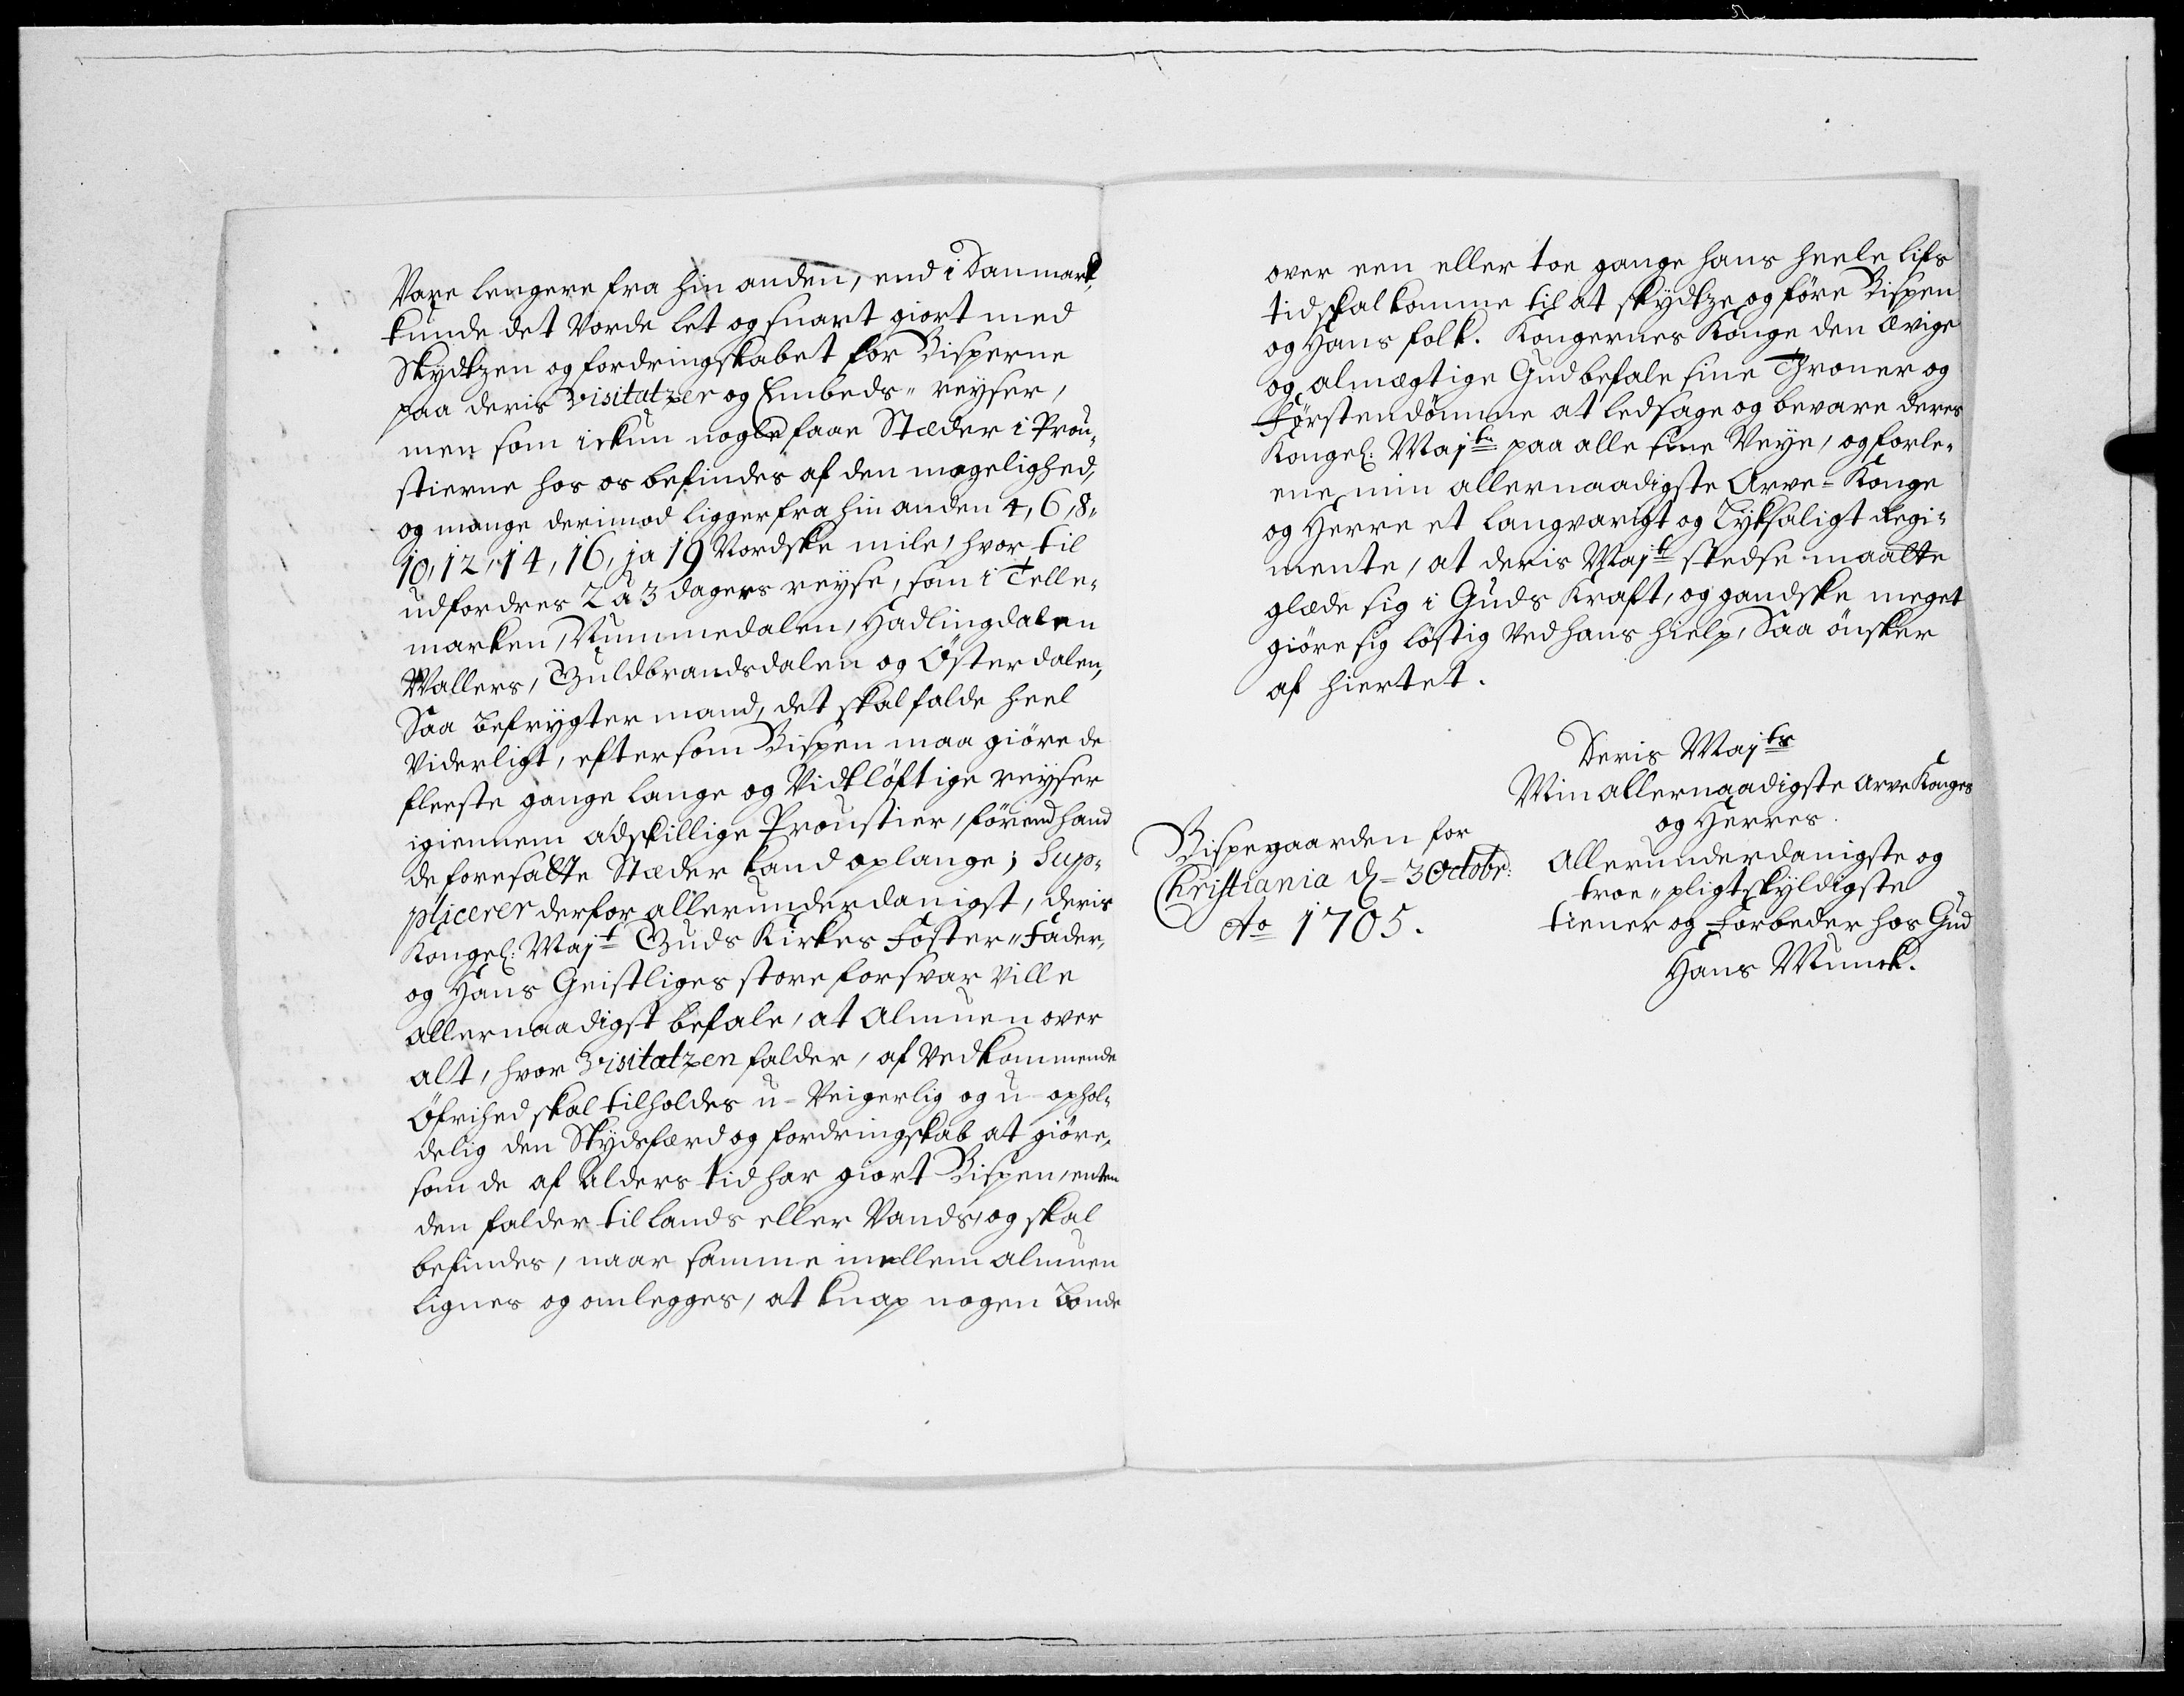 Vare lengere fra hin anden, end i Danmark,
kunde det Vorde let og snart giort med
Skydtzen og fordringskabet for Bisperne
paa deris Visitatzer og Embeds-reyser,
men som ickun nogle faae Stæder i Prou-
stierne hos os befindes af den magelighed,
og mange derimod ligger fra hin anden 4, 6, 8,
10, 12, 14, 16, ja 19 Nordske mile, hvor til
udfordres 2 a 3 dagers reyse, som i Telle-
marken, Nummedalen, Hadlingdalen
Wallers, Guldbrandsdalen og Österdalen,
Saa befrygter mand, det skal falde heel
Viderligt, eftersom Bispen maa giöre de
fleeste gange lange og Vidtlöftige reyser
igiennem adskillige Proustier, förend hand
de foresatte Stæder kand oplange; Sup-
plicerer derfor allerunderdanigst, deris
Kongel: Majt Guds Kirkes Foster-Fader,
og Hans Geistliges store forsvar ville
allernaadigst befale, at Almuen over
alt, hvor Visitatzen falder, af Vedkommende
Öfrihed skal tilholdes u-Veigerlig og u-ophol-
delig den Skydsfærd og fordringskab at giöre,
som de af Alders tid har giort Bispen, enten
den falder til lands eller Vands, og skal
befindes, naar samme imellem almuen
lignes og omlegges, at knap nogen Bonde
over een eller toe gange hans heele lifs
tid skal komme til at skydtze og före Bispen
og Hans folk. Kongernes Konge den ævige
og almægtige Gud befale sine Throner og
Förstendömme at ledsage og bevare deres
Kongel: Majt paa alle sine Veye, og forle-
ene min allernaadigste Arve-Konge
og Herre et langvarigt og Lyksaligt Regi-
mente, at deris Majt stedse maatte
glæde sig i Guds Kraft, og gandske meget
giöre sig löstig Ved hans hielp, Saa önsker
af hiertet.
Deris Majts
Min allernaadigste Arve Konges
og Herres
Bispegaarden for
Christiania d. 3 Octobr:
Ao 1705.
Allerunderdanigste og
troe-pligtskyldigste
tiener og Forbeder hos Gud
Hans Munck.